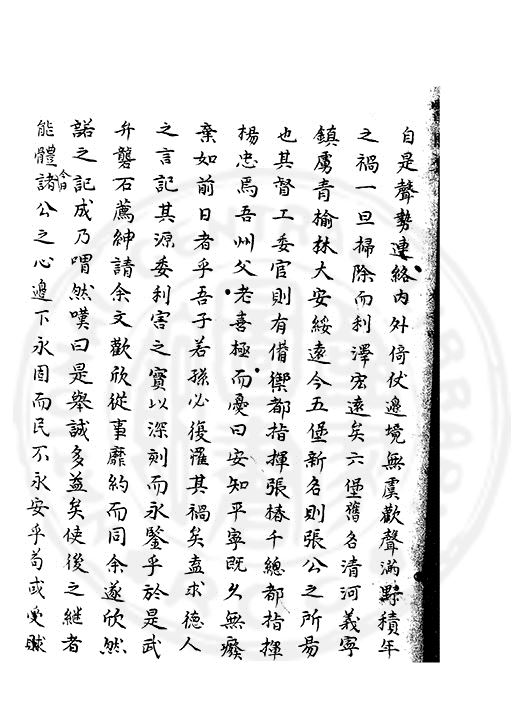 自是聲勢連絡内外倚伏邊境無虞歡聲滿野積年
之禍一旦掃除而利澤宏遠矣六堡舊名清河義寧
鎮虜青榆林大安綏遠今五堡新名則張公之所易
也其督工委官則有備禦都指揮張椿千總都指揮
楊忠焉吾州父老喜極而憂曰安知平寧既久無癈
棄如前日者乎吾子若孫必復罹其禍矣盍求德人
之言記其源委利害之實以深刻而永鑒乎於是武
弁礱石薦紳請余文歡欣從事靡約而同余遂欣然
諾之記成乃喟然嘆曰是舉誠多益矣使後之継者
能體諸今日公之心邊下永固而民不永安乎苟或受賕